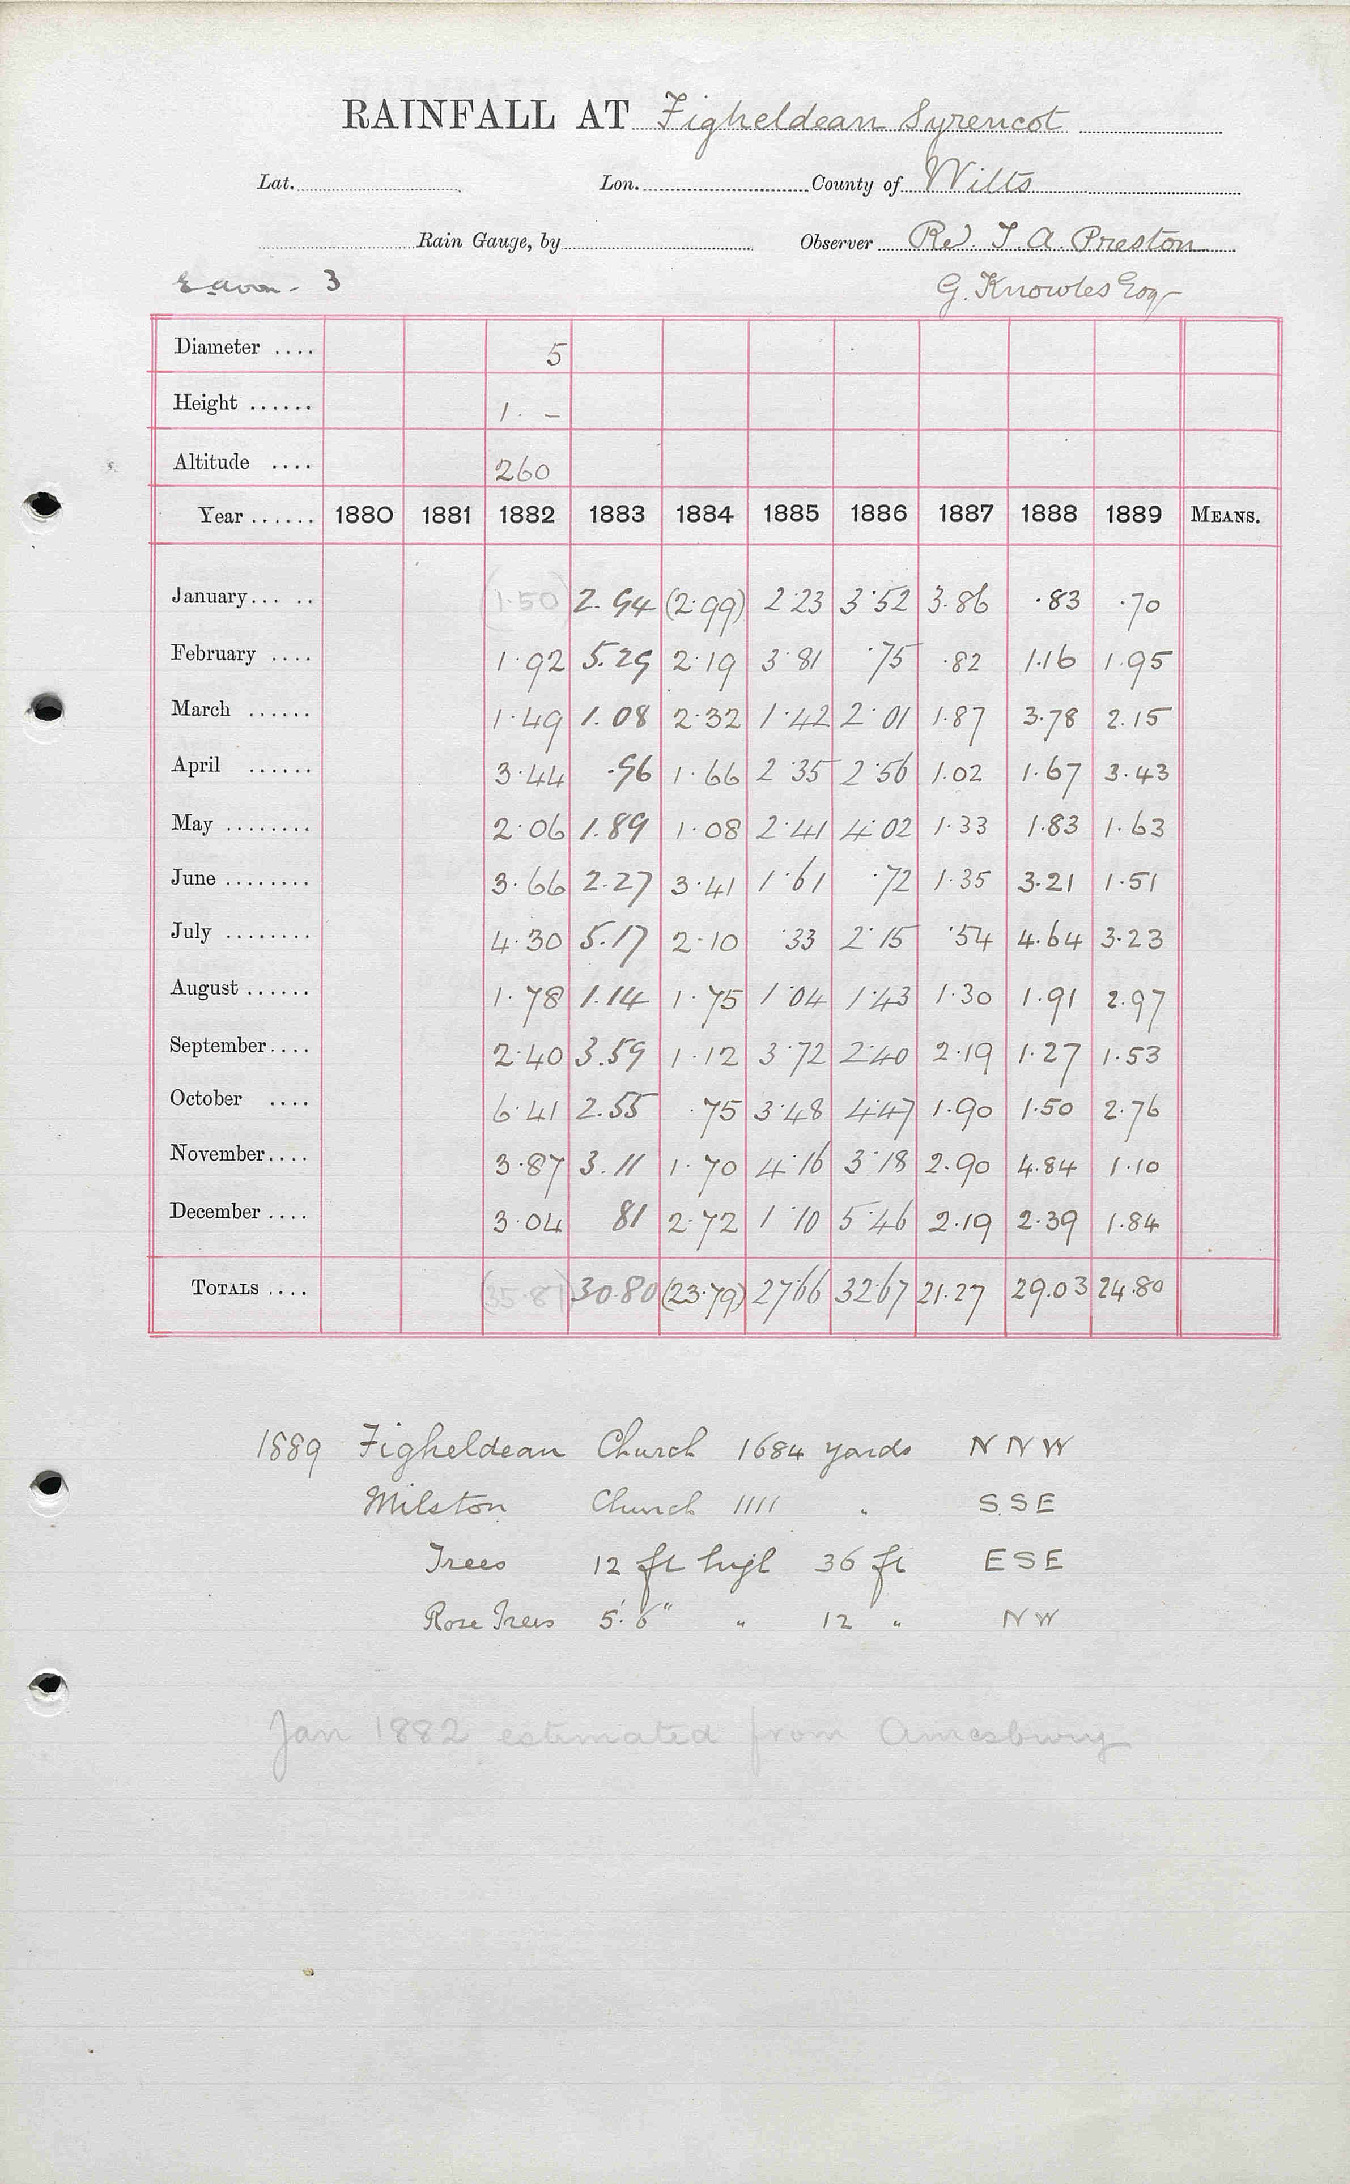 RAINFALL AT Figheldean Syrencot
Lat. Lon. County of Wilts
Rain Gauge, by Observer Rev. T. A. Preston
E Avon - 3 G. Knowles Esq
Diameter .... 5
Height ...... 1. -
Altitude .... 260
Year ...... 1880 1881 1882 1883 1884 1885 1886 1887 1888 1889 MEANS.
January... .. (1.50) 2.94 (2.99) 2.23 3.52 3.86 .83 .70
February .... 1.92 5.29 2.19 3.81 .75 .82 1.16 1.95
March ...... 1.49 1.08 2.32 1.42 2.01 1.87 3.78 2.15
April ...... 3.44 .96 1.66 2.35 2.56 1.02 1.67 3.43
May ........ 2.06 1.89 1.08 2.41 4.02 1.33 1.83 1.63
June ........ 3.66 2.27 3.41 1.61 .72 1.35 3.21 1.51
July ........ 4.30 5.17 2.10 .33 2.15 .54 4.64 3.23
August ...... 1.78 1.14 1.75 1.04 1.43 1.30 1.91 2.97
September.... 2.40 3.59 1.12 3.72 2.40 2.19 1.27 1.53
October .... 6.41 2.55 .75 3.48 4.47 1.90 1.50 2.76
November.... 3.87 3.11 1.70 4.16 3.18 2.90 4.84 1.10
December .... 3.04 81 2.72 1.10 5.46 2.19 2.39 1.84
TOTALS .... (35.87) 30.80 (23.79) 27.66 32.67 21.27 29.03 24.80
1889 Figheldean Church 1684 yards N N W
Milston Church 1111 " S.S E
Trees 12 ft high 36 ft E S E
Rose Trees 5' 6" " 12 " N W
Jan 1882 estimated from Amesbury